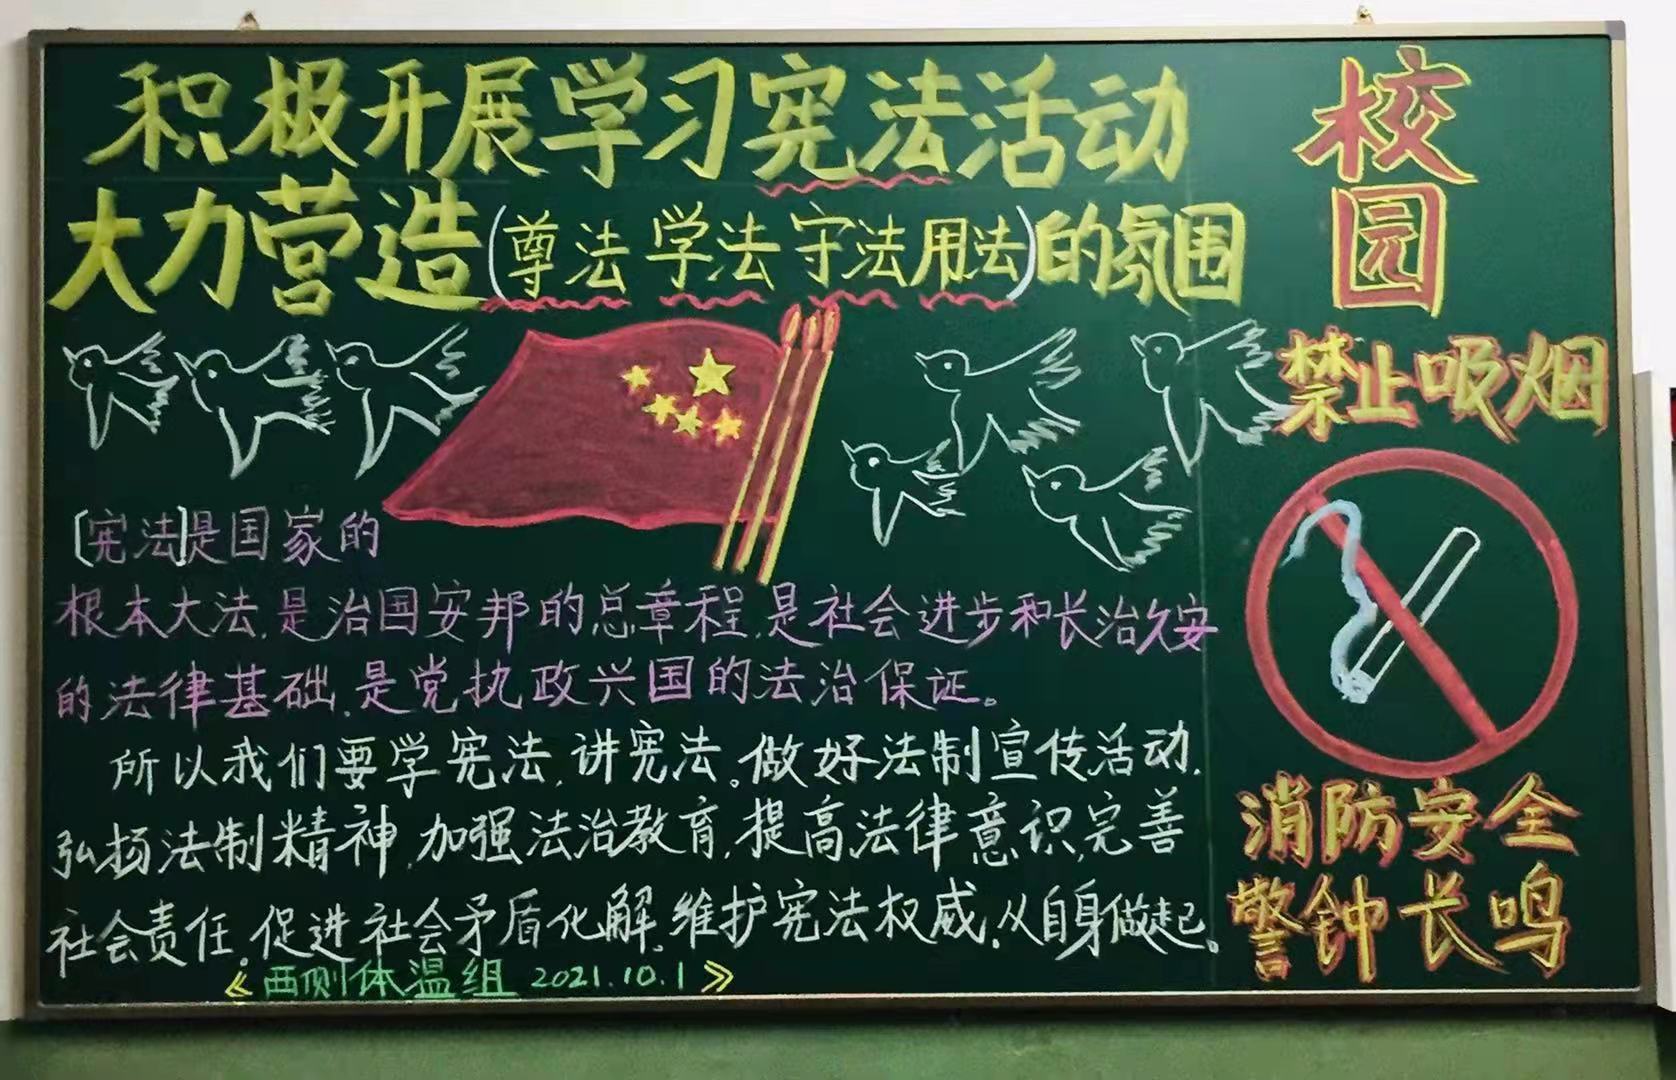 积极开展学习宪法活动
大力营造(尊法 学法 守法用法)的氛围
[宪法]是国家的
根本大法,是治国安邦的总章程,是社会进步和长治久安
的法律基础,是党执政兴国的法治保证。
所以我们要学宪法,讲宪法。做好法制宣传活动,
弘扬法制精神,加强法治教育,提高法律意识,完善
社会责任。促进社会矛盾化解,维护宪法权威,从自身做起。
《西侧体温组 2021.10.1》
校
园
禁止吸烟
消防安全
警钟长鸣